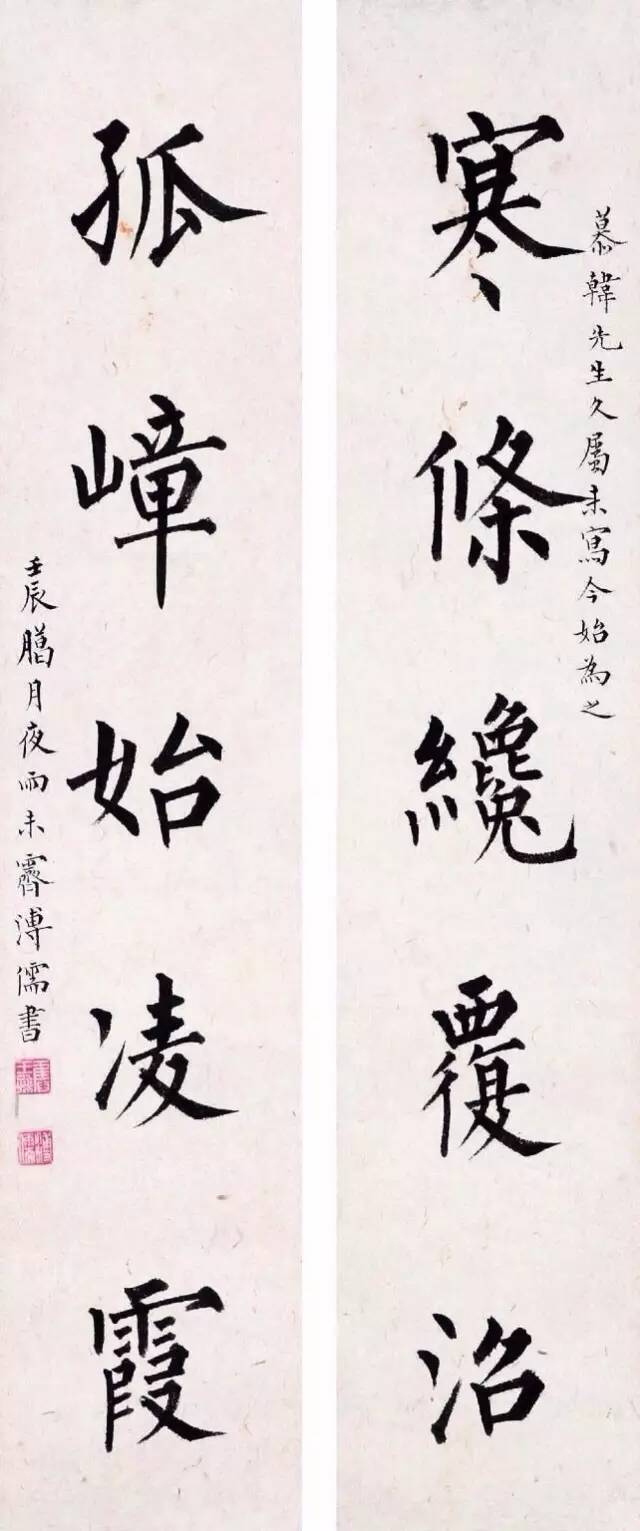 慕韓先生久屬未寫今始為之
寒條纔覆沼
孤嶂始凌霞
壬辰臈月夜雨未霽溥儒書